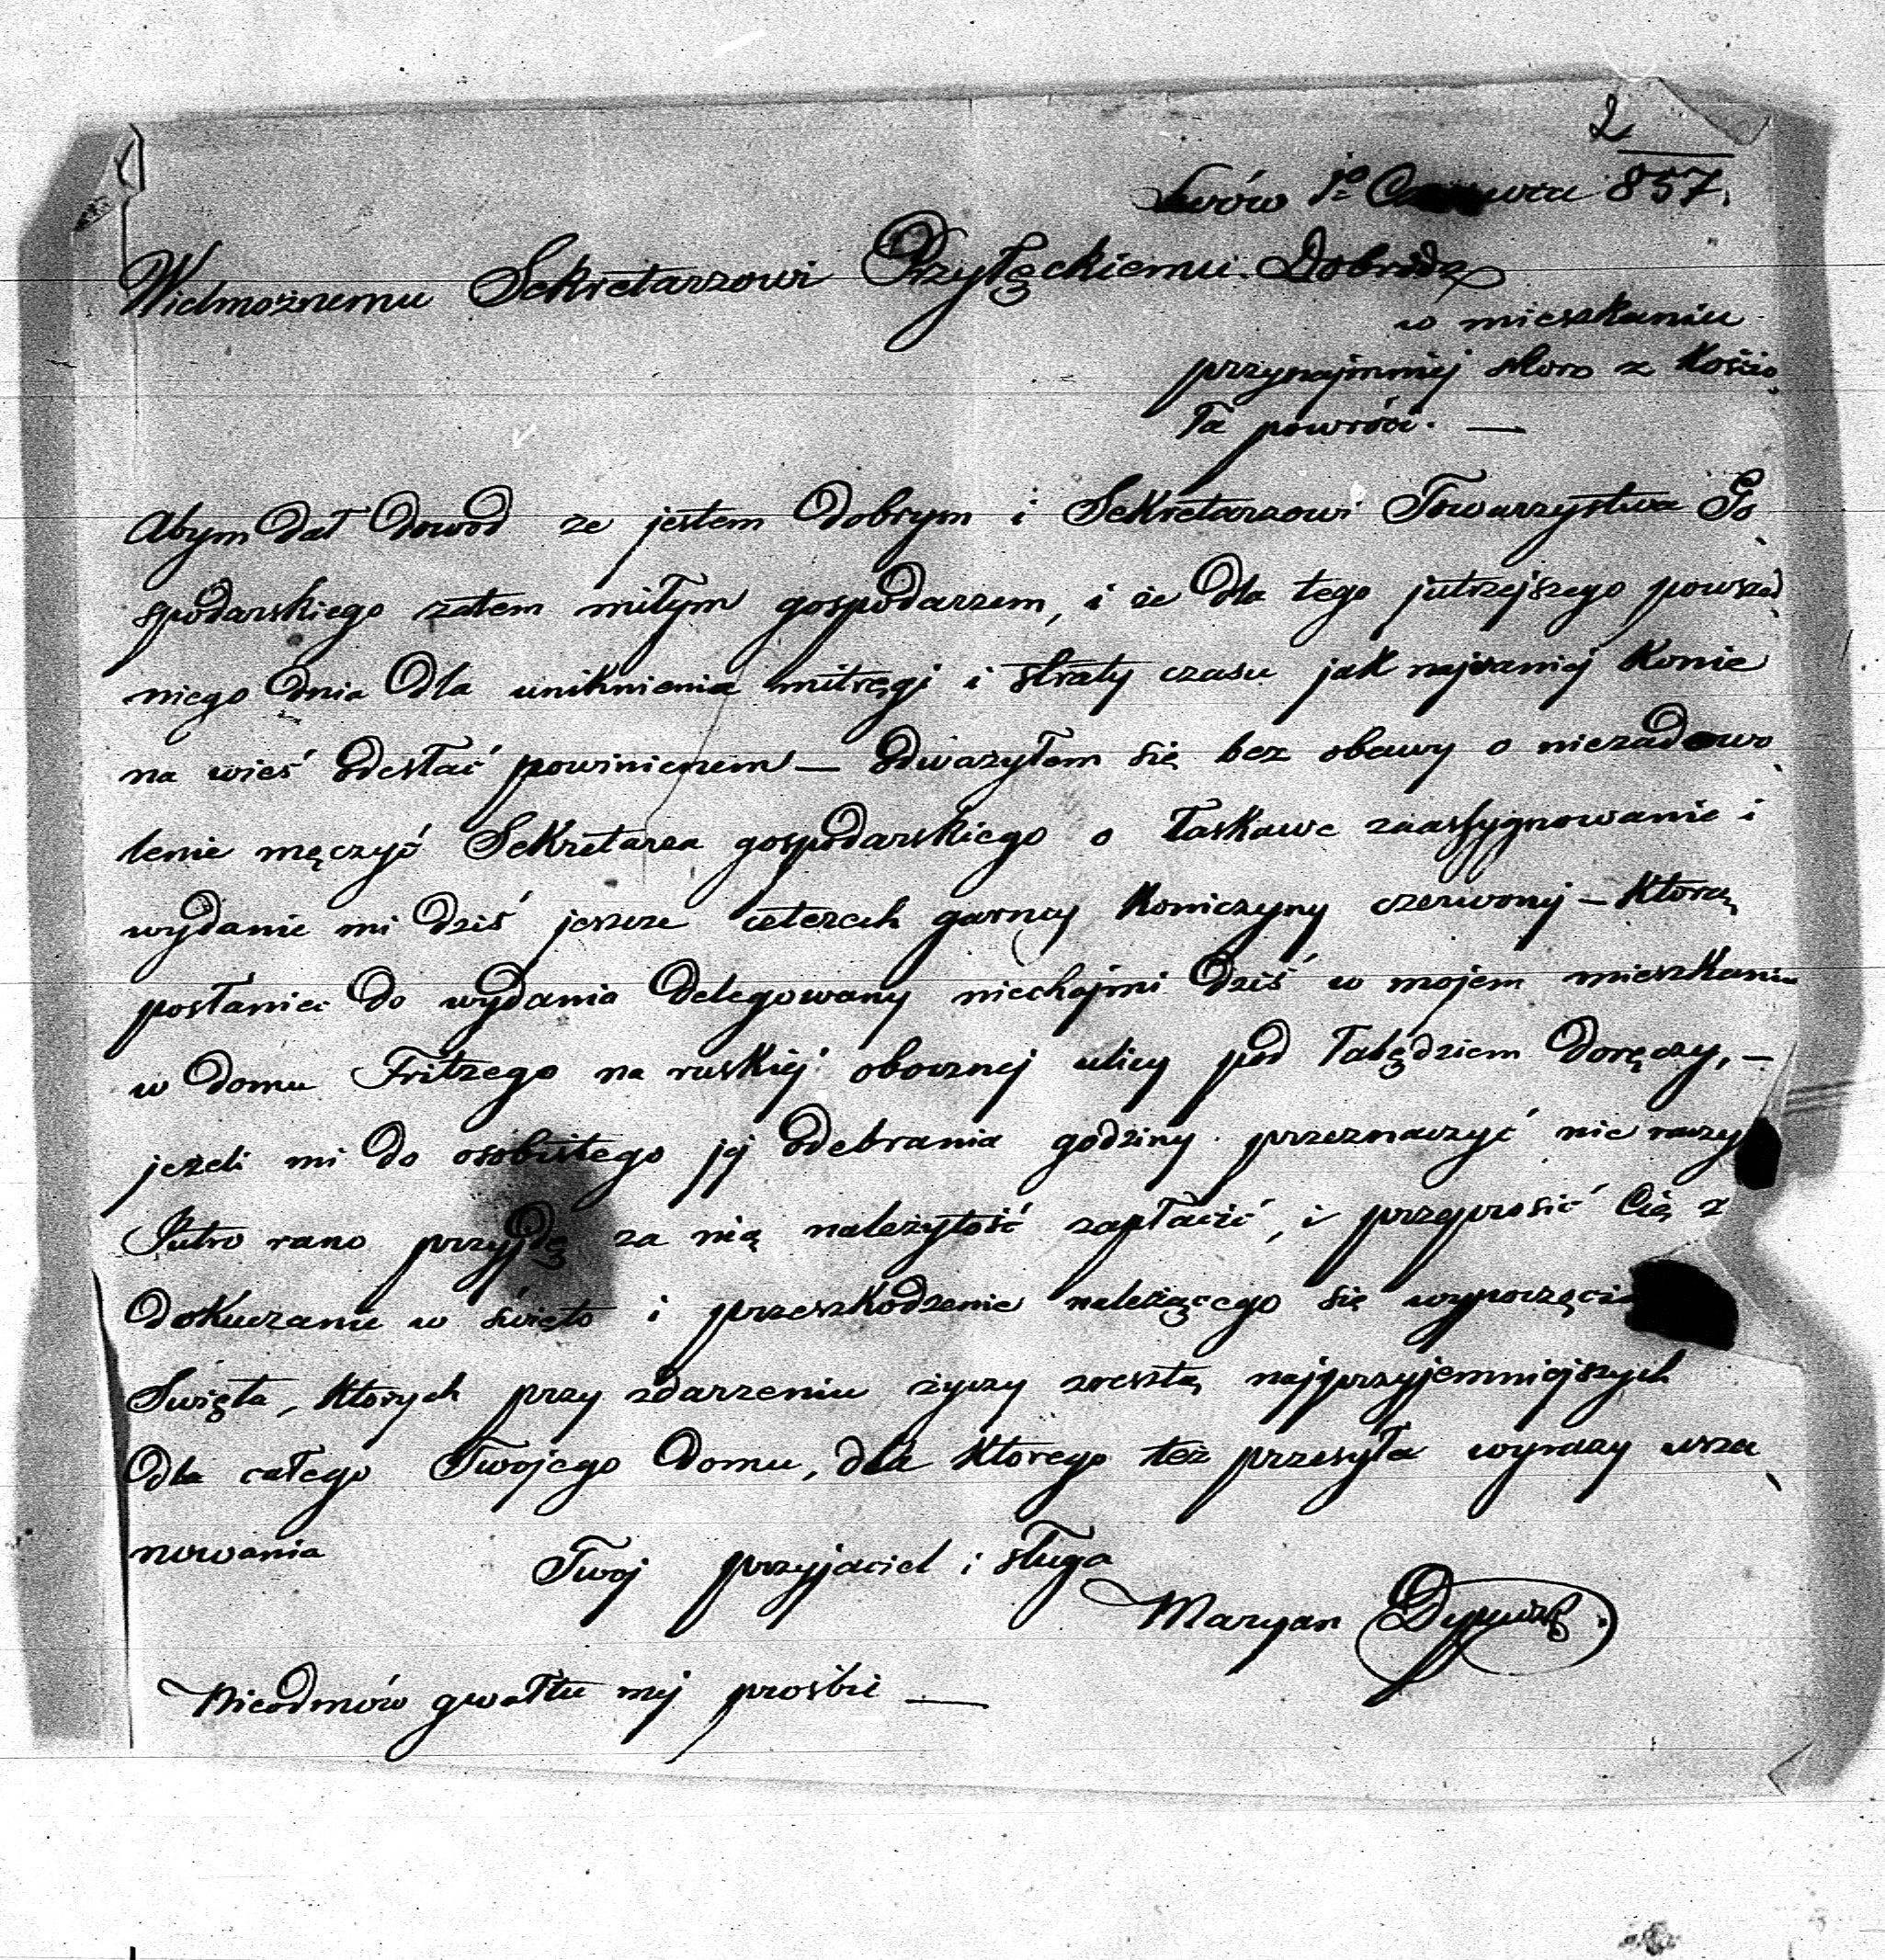 2
Lwów 1o Czerwca 857.
Wielmożnemu Sekretarzowi Przyłęckiemu Dobrodz
w mieszkaniu
przynajmniej skoro z Kościo
ła powróci. —
Abym dał dowód że jestem dobrym i Sekretarzowi Towarzystwa Go
spodarskiego zatem miłym gospodarzem, i że dla tego jutrzejszego powszed
niego dnia dla uniknienia mitręgi i straty czasu jak najraniej konie
na wieś odesłać powinienem — odważyłem się bez obawy o niezadowo
lenie męczyć Sekretarza gospodarskiego o łaskawe zaassygnowanie i
wydanie mi dziś jeszcze czterech garncy Koniczyny czerwonej — którą
posłaniec do wydania delegowany niechajmi dziś w mojem mieszkaniu
w domu Fritzego na ruskiej obocznej ulicy pod łabędziem doręczy, —
jeżeli mi do osobistego jej odebrania godziny przeznaczyć nie raczy
Jutro rano przyjdę za nią należytość zapłacić, i przeprosić Cię z
dokuczanie w święto i przeszkodzenie należącego się wypoczęcia
Święta, których przy zdarzeniu życzy zresztą najprzyjemniejszych
dla całego Twojego domu, dla którego też przesyła wyrazy usza
nowania
Twój przyjaciel i sługa
Maryan
Nieodmów gwałtu mej prośbie —